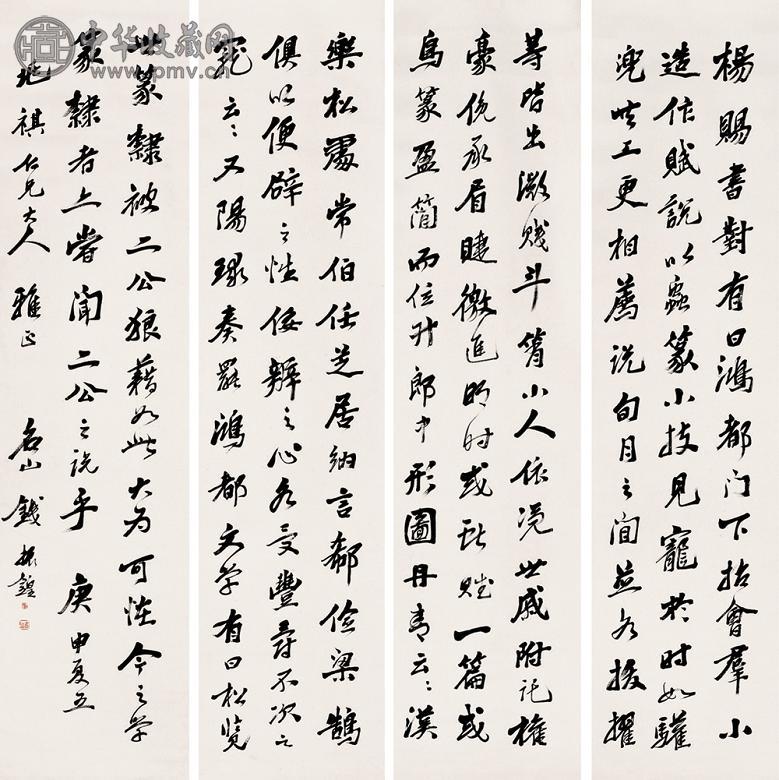 中华收藏网
www.pmv.cn
楊賜書對有曰鴻都门下招會羣小
造作賦說以蟲篆小技見寵於時如驩
兜共工更相薦說旬月之間並各拔擢
等皆出微賤斗筲小人依憑世戚附託權
豪俛承眉睫徼進明時或獻賦一篇或
鳥篆盈簡而位升郎中形圖丹青云云漢
樂松處常伯任芝居納言郗儉梁鵠
俱以便辟之性佞辯之心各受豐爵不次之
寵云云又陽球奏罷鴻都文学有曰松覽
世篆隸被二公狼藉如此大为可怪今之学
篆隸者嘗聞二公之說乎 庚申夏五
祺仁兄大人雅正 名山錢振鍠